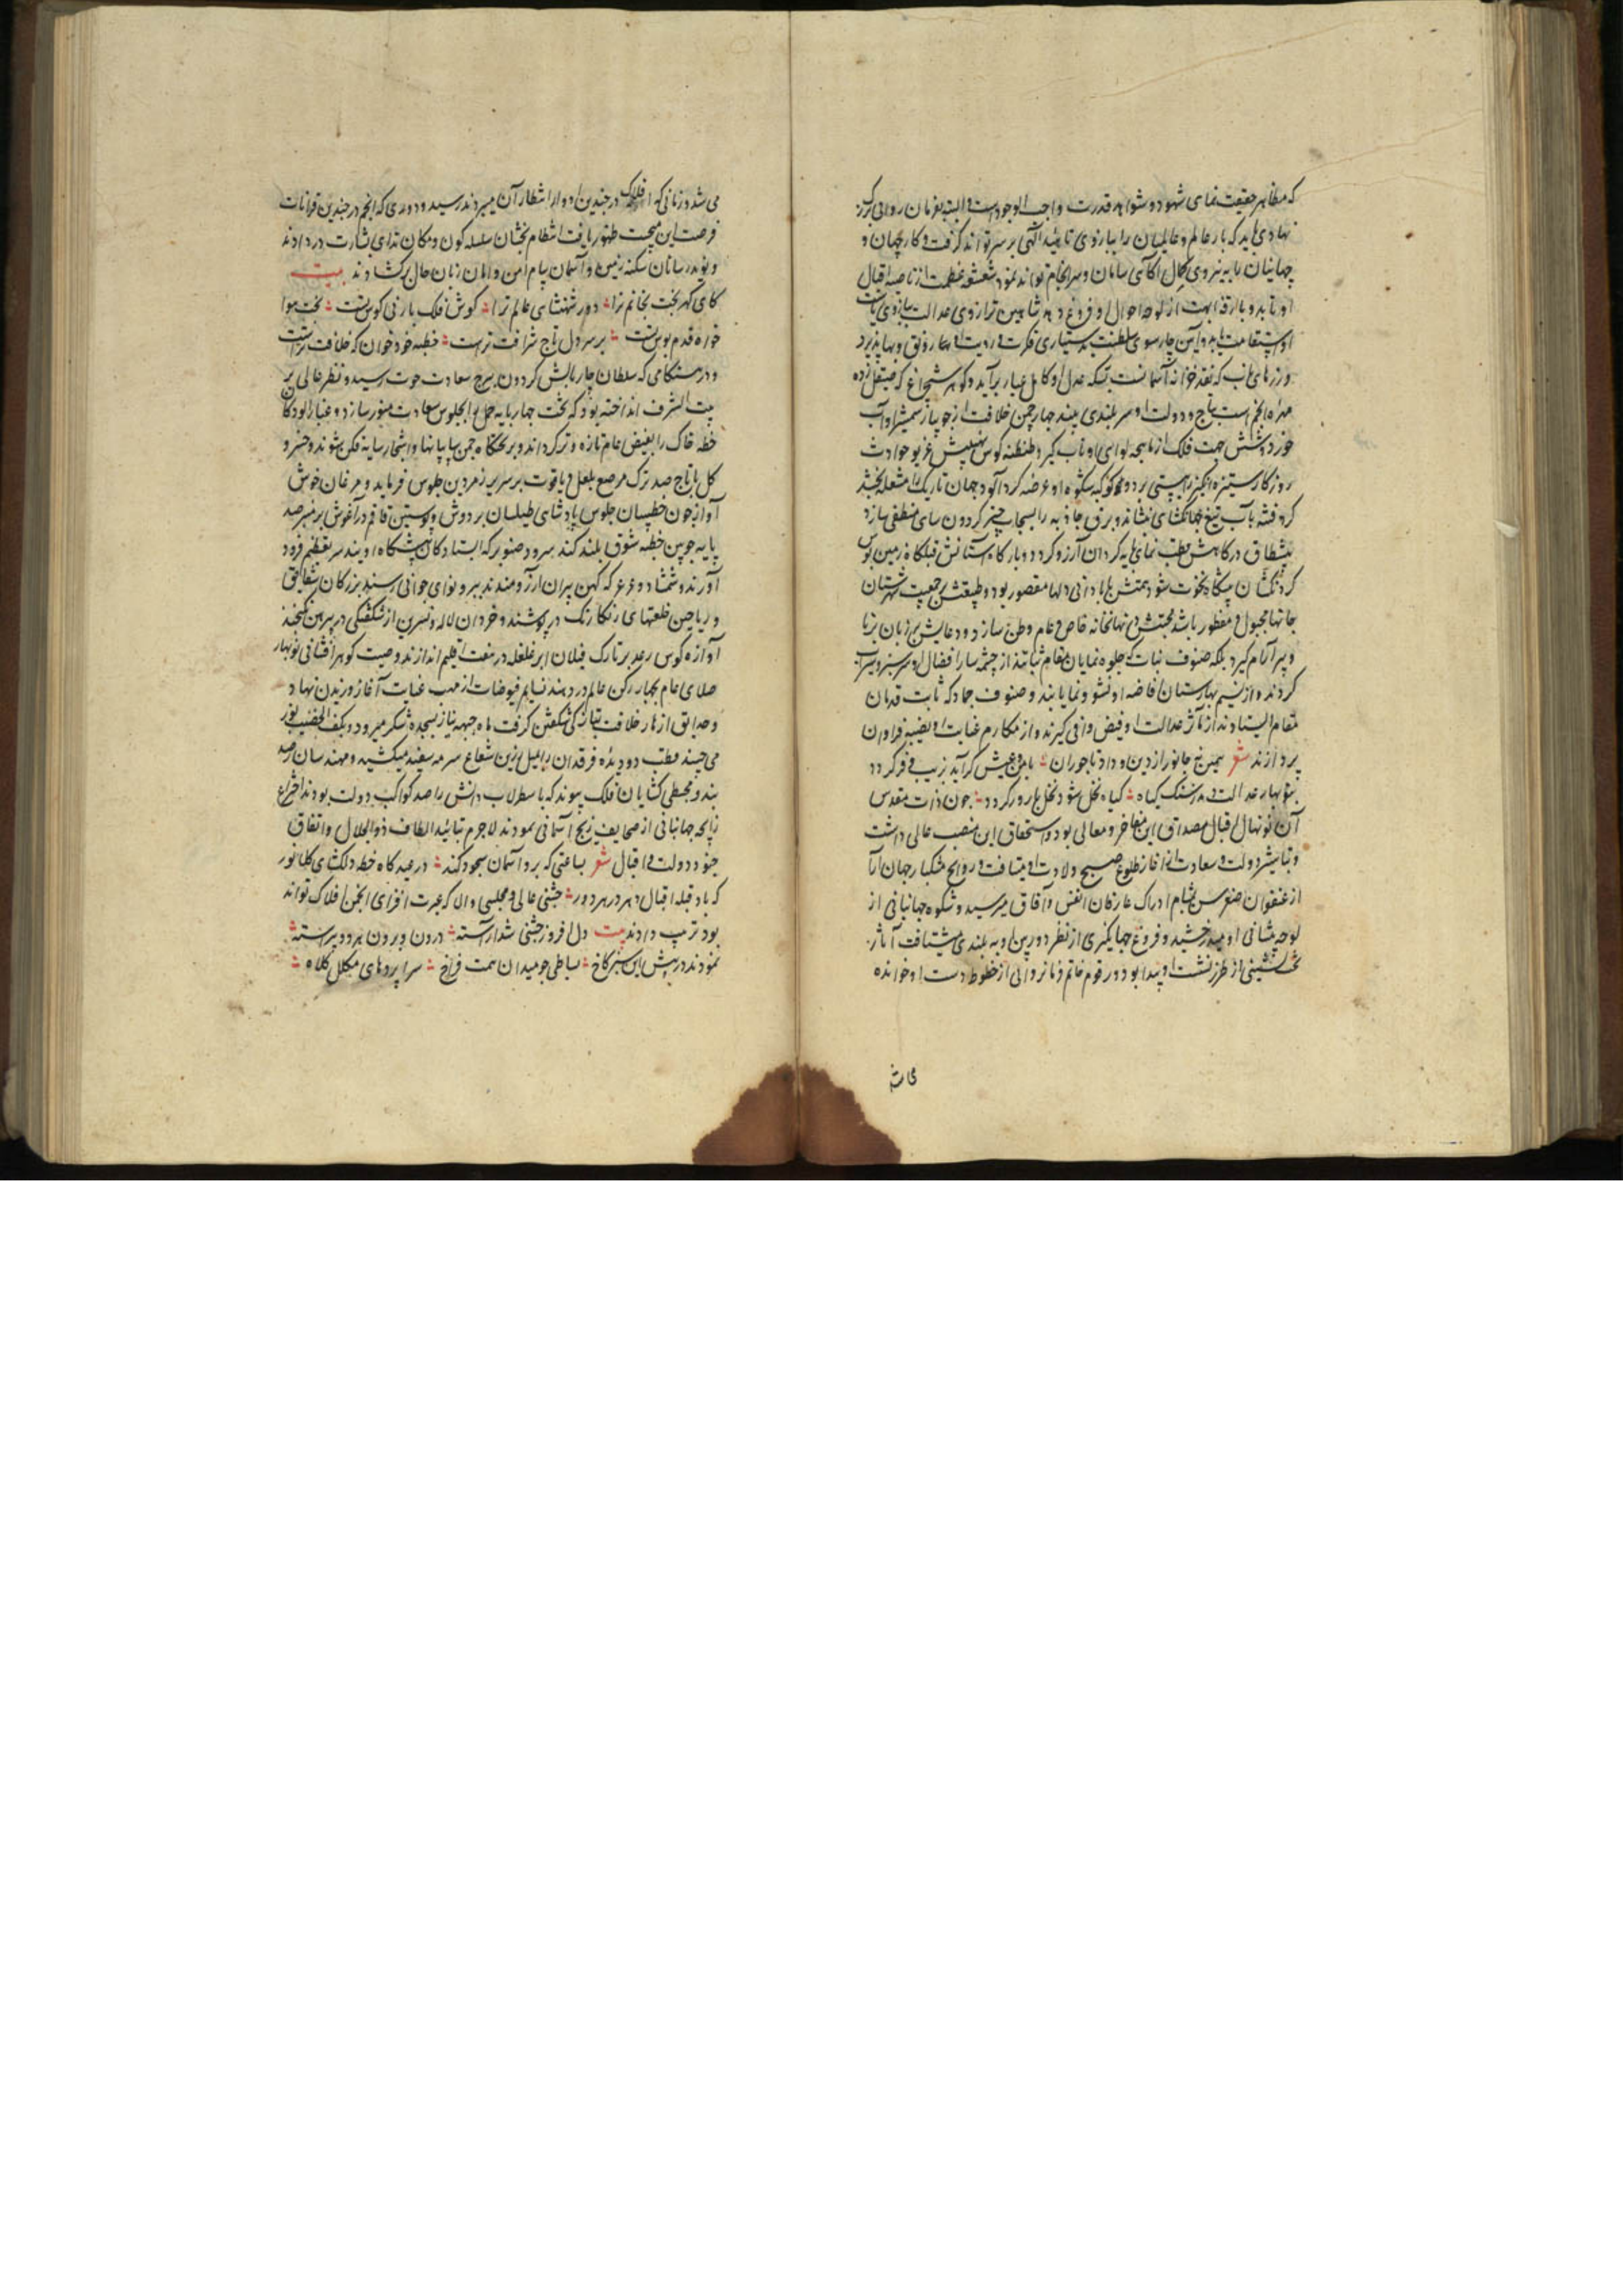 که مظاهر حقیقت نمای شهود و شواهد قدرت واجب الوجودست البته بفرمان روایی بزرک
نهادی باید که بار عالم و عالمیان را ببازوی تائید الهی بر سر تواند کرفت و کار جهان و
جهانیان را به نیروی کمال آکاهی سامان و سرانجام تواند نمود شعشعه عظمت از ناصیه اقبال
او تابد و بارقه ابهت از لوحه احوال او فروغ دهد شاهین ترازوی عدالت ببازوی
او استقامت یابد و آیین چارسوی سلطنت بدستیاری فکرت و رویت او رونق و بها پذیرد
که نقد خزانه آسمانست بسکه عدل او کامل عیار برآید و کوهر شبچراغ که صیقل زده
مهره انجم است بتاج دولت او سربلندی بیند چهار چمن خلافت از جویبار شمشیر او آب
خورد و شش جهت فلک از ماهیچه لوای او تاب کیرد طنطنه کوس غریو حوادث
روزکار ستیزه انکیز را پستی برد و کوکبه شکوه او عرصه کرد آلود جهان تاریک را مشعله بخشد
کرد فتنه بآب تیغ جهانکشای نشاند و برق حادثه را بسحاب چتر کردون سای منطفی سازد
پیشطاق درکاهش قطب نمای کردان آرزو کردد و بارکاه آستانش قبله کاه زمین بوس
کردنکشان نخوت شود همتش بآبادانی دلها مقصور بود و طبیعتش بر جمعیت شهرستان
جانها مجبول و مفطور باشد محبتش در نهانخانه خاص و عام وطن سازد و دعایش بر زبان برنا
و پیر آرام کیرد بلکه صنوف نبات که جلوه نمایان مقام از چشمه سار افضال او سرسبز و سیراب
کردند و از نسیم بهارستان افاضه او نشو و نما یابند و صنوف جماد که ثابت قدمان
مقام ایستادند از مآثر عدالت او فیض وافی کیرند و از مکارم عنایت او نصیبه فراوان
پردازند شعر همین نه جانور از دین و داد تاجوران ؞ بامن و عیش کراید بزیب و فر کردد
بنوبهار عدالت هر کیاه ؞ کیاه نخل شود نخل بارور کردد ؞ چون ذات مقدس
آن نونهال اقبال مصداق این مفاخر و معالی بود و استحقاق این منصب عالی داشت
و تباشیر دولت و سعادت از آغاز طلوع صبح ولادت او میتافت و روایح مشکبار جهان آرا
از عنفوان صغر سن بمشام ادراک عارفان انفس و آفاق میرسید و شکوه جهانبانی از
لوحه پیشانی او میدرخشید و فروغ جهانکیری از نظر دوربین او به بلندی میشتافت آثار
تخت نشینی از طرز نشست او پیدا بود و رقوم خاتم فرمانروایی از خطوط دست او خوانده
می شد
می شد و زمانی که افلاک در چندین ادوار انتظار آن میبردند رسید و دوری که انجم در چندین قرانات
فرصت این میجست ظهور یافت انتظام بخشان سلسله کون و مکان ندای بشارت در دادند
و نوید رسانان سکنه زمین و آسمان پیام امن و امان بزبان حال برکشادند بیت
کای کهر بخت بخاتم ترا ؞ دور شهنشاهی عالم ترا ؞ کوش فلک بار نی کوس تست ؞ تخت هوا
خواه قدم بوس تست ؞ بر سر دل تاج شرافت تراست ؞ خطبه خود خوان که خلافت تراست
و در هنکامی که سلطان چار بالش کردون ببرج سعادت حوت رسید و نظر عالی بر
بیت الشرف انداخته بود که تخت چهار پایه حمل را بجلوس سعادت منور سازد و غبارآلودکان
خطه خاک را بفیض عام تازه و تر کرداند و بر تختکاه چمن و اشجار سایه فکن شوند و خسرو
کل با تاج صد ترک مرصع بلعل و یاقوت بر سریر زمردین جلوس فرماید و مرغان خوش
آواز چون خطیبان جلوس پادشاهی طیلسان بر دوش و پوستین قاقم در آغوش بر منبر صد
پایه چوبین خطبه شوق بلند کنند سرو و صنوبر که ایستادکان پیشکاه اویند سر بتعظیم فرود
آورند و شمشاد و عرعر که کهن پیران آرزومندند ببر و نوای جوانی رسند بزرکان شقایق
و ریاحین خلعتهای رنکارنک در پوشند و خردان لاله و نسرین از شکفتکی در پیراهن نکنجند
آوازه کوس رعد بر تارک فیلان ابر غلغله در هفت اقلیم اندازند و صیت کوهرافشانی نوبهار
صلای عام بچهار رکن عالم در دهند نسایم فیوضات از مهب عنایت آغاز وزیدن نهاد
و حدایق ازهار خلافت بتازکی شکفتن کرفت ماه جبهه نیاز بسجده شکر میرود و بکف الخضیب نور
می چیند قطب دو دیده فرقدان را بمیل زرین شعاع سرمه سفید میکشید و مهندسان رصد
بند و مجسطی کشایان فلک پیوند که باسطرلاب دانش راصد کواکب دولت بودند اختراع
زایجه جهانبانی از صحایف زیج آسمانی نمودند لاجرم بتائید الطاف ذوالجلال و اتفاق
جنود دولت و اقبال شعر بساعتی که برو آسمان سجود کند ؞ در عیدکاه خطه دلکشای کلانور
که باد قبله اقبال دهر در هر دور ؞ جشنی عالی و مجلسی والا که عبرت افزای انجمن افلاک تواند
بود ترتیب دادند بیت دل افروز جشنی شد آراسته ؞ درون و برون هر دو پیراسته ؞
نمودند در پیش این سبز کاخ ؞ بساطی چو میدان همت فراخ ؞ سراپردهای مکلل کلاه ؞